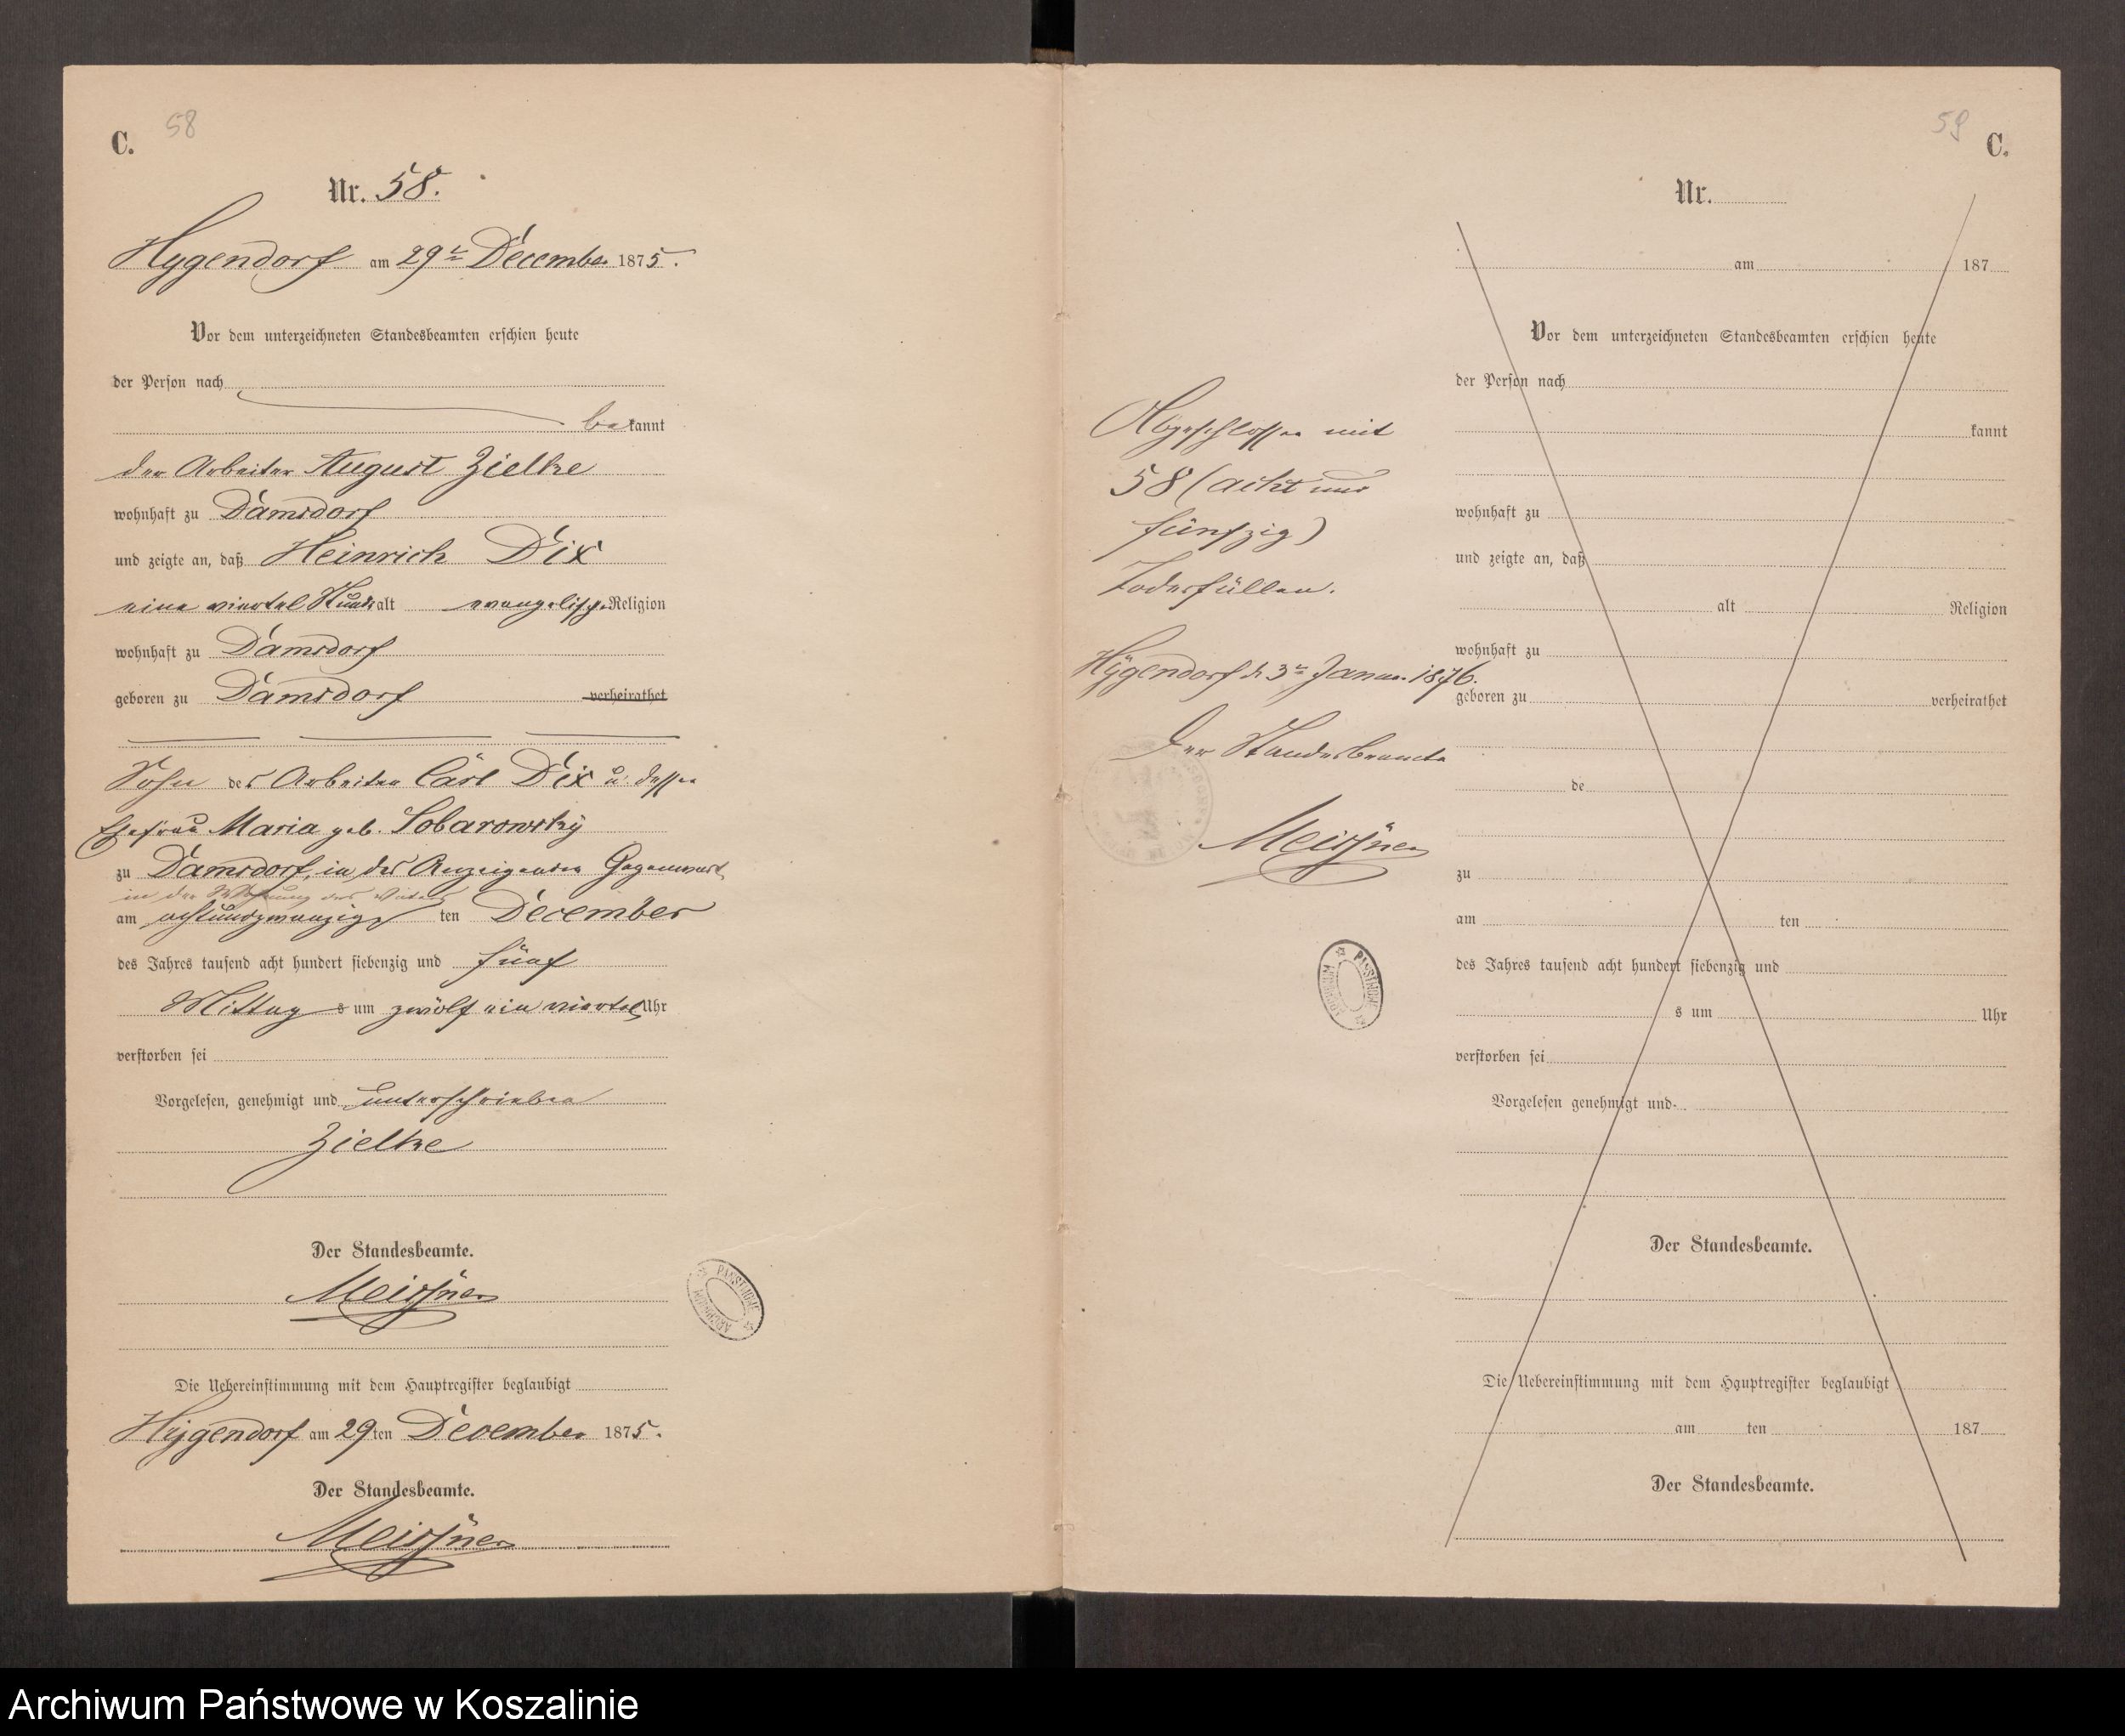 C. 58
Nr. 58.
Hygendorf am 29ten December 1875.
Vor dem unterzeichneten Standesbeamten erschien heute
der Person nach
bekannt
der Arbeiter August Zielke
wohnhaft zu Damsdorf
und zeigte an, daß Heinrich Dix
eine viertel Stunde alt evangelischer Religion
wohnhaft zu Damsdorf
geboren zu Damsdorf verheirathet
Sohn des Arbeiter Carl Dix u. dessen
Ehefrau Maria geb. Sobarowsky
zu Damsdorf, in des Anzeigenden Gegenwart
in der Wohnung des Vaters
am achtundzwanzigs ten December
des Jahres tausend acht hundert siebenzig und fünf
Mittag s um zwölf ein viertel Uhr
verstorben sei
Vorgelesen, genehmigt und unterschrieben
Zielke
Der Standesbeamte.
Meissner
PAŃSTWOWE ARCHIWUM
Die Uebereinstimmung mit dem Hauptregister beglaubigt
Hygendorf am 29ten December 1875.
Der Standesbeamte.
Meissner
59 C.
Nr.
am 187
Vor dem unterzeichneten Standesbeamten erschien heute
der Person nach
kannt
wohnhaft zu
und zeigte an, daß
alt Religion
wohnhaft zu
geboren zu verheirathet
de
zu
am ten
des Jahres tausend acht hundert siebenzig und
s um Uhr
verstorben sei
Vorgelesen genehmigt und
Der Standesbeamte.
Die Uebereinstimmung mit dem Hauptregister beglaubigt
am ten 187
Der Standesbeamte.
Abgeschlossen mit
58 (acht und
fünfzig)
Todesfällen.
Hygendorf d. 3ten Januar 1876.
Der Standesbeamte
Meissner
PAŃSTWOWE ARCHIWUM
Archiwum Państwowe w Koszalinie